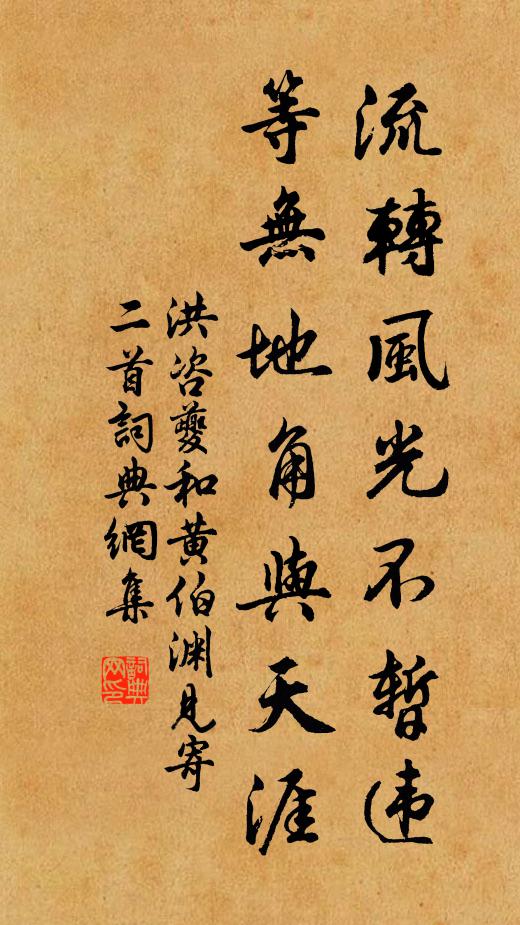 流轉風光不暫違
等無地角與天涯
洪咨夔和黄伯渊見寄
二首詞典網集
詞典网印